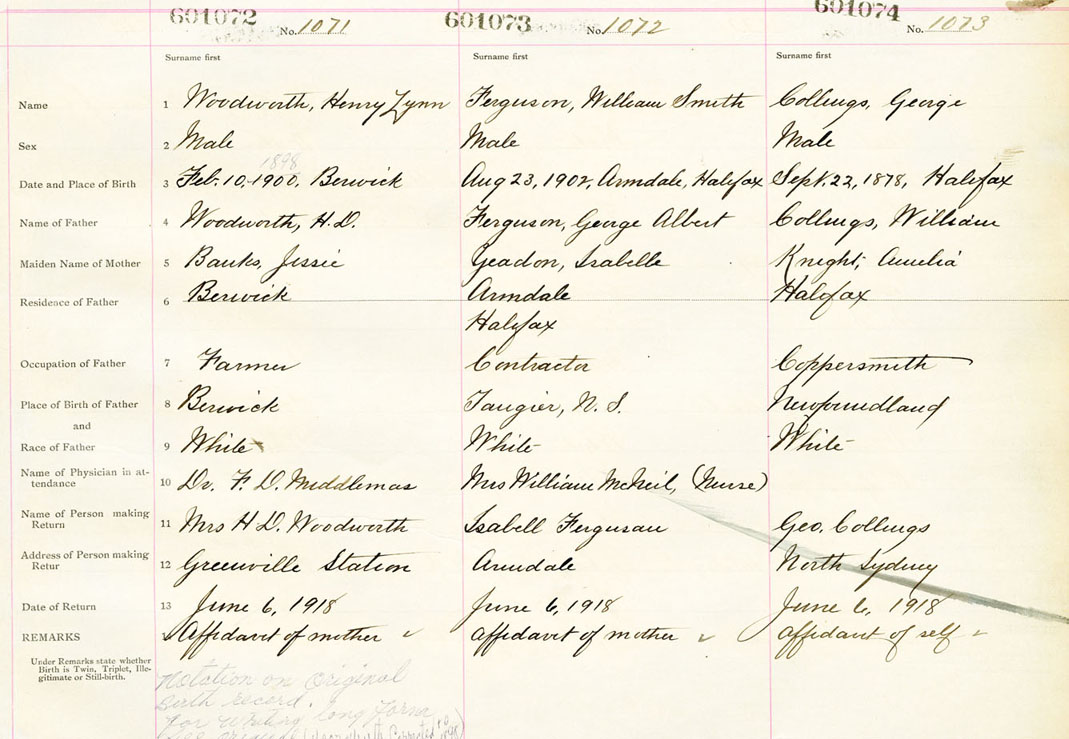 601072 No. 1071 601073 No. 1072 601074 No. 1073
Surname first Surname first Surname first
Name 1 Woodworth, Henry Lynn Ferguson, William Smith Collings, George
Sex 2 Male Male Male
1898
Date and Place of Birth 3 Feb. 10, 1900, Berwick Aug 23, 1902, Armdale, Halifax Sept. 22, 1878, Halifax
Name of Father 4 Woodworth, H. D. Ferguson, George Albert Collings, William
Maiden Name of Mother 5 Banks, Jessie Yeadon, Isabelle Knight, Amelia
Residence of Father 6 Berwick Armdale Halifax
Halifax
Occupation of Father 7 Farmer Contractor Coppersmith
Place of Birth of Father 8 Berwick Tangier, N. S. Newfoundland
and
Race of Father 9 White White White
Name of Physician in at-
tendance 10 Dr. F. D. Middlemas Mrs William McNeil, (Nurse)
Name of Person making
Return 11 Mrs H. D. Woodworth Isabell Ferguson Geo. Collings
Address of Person making
Retur 12 Greenville Station Armdale North Sydney
Date of Return 13 June 6, 1918 June 6, 1918 June 6, 1918
REMARKS Affidavit of mother Affidavit of mother Affidavit of self
Under Remarks state whether
Birth is Twin, Triplet, Ille-
gitimate or Still-birth.
Notation on original
birth record.
For writing long form
see original corrected to 1898